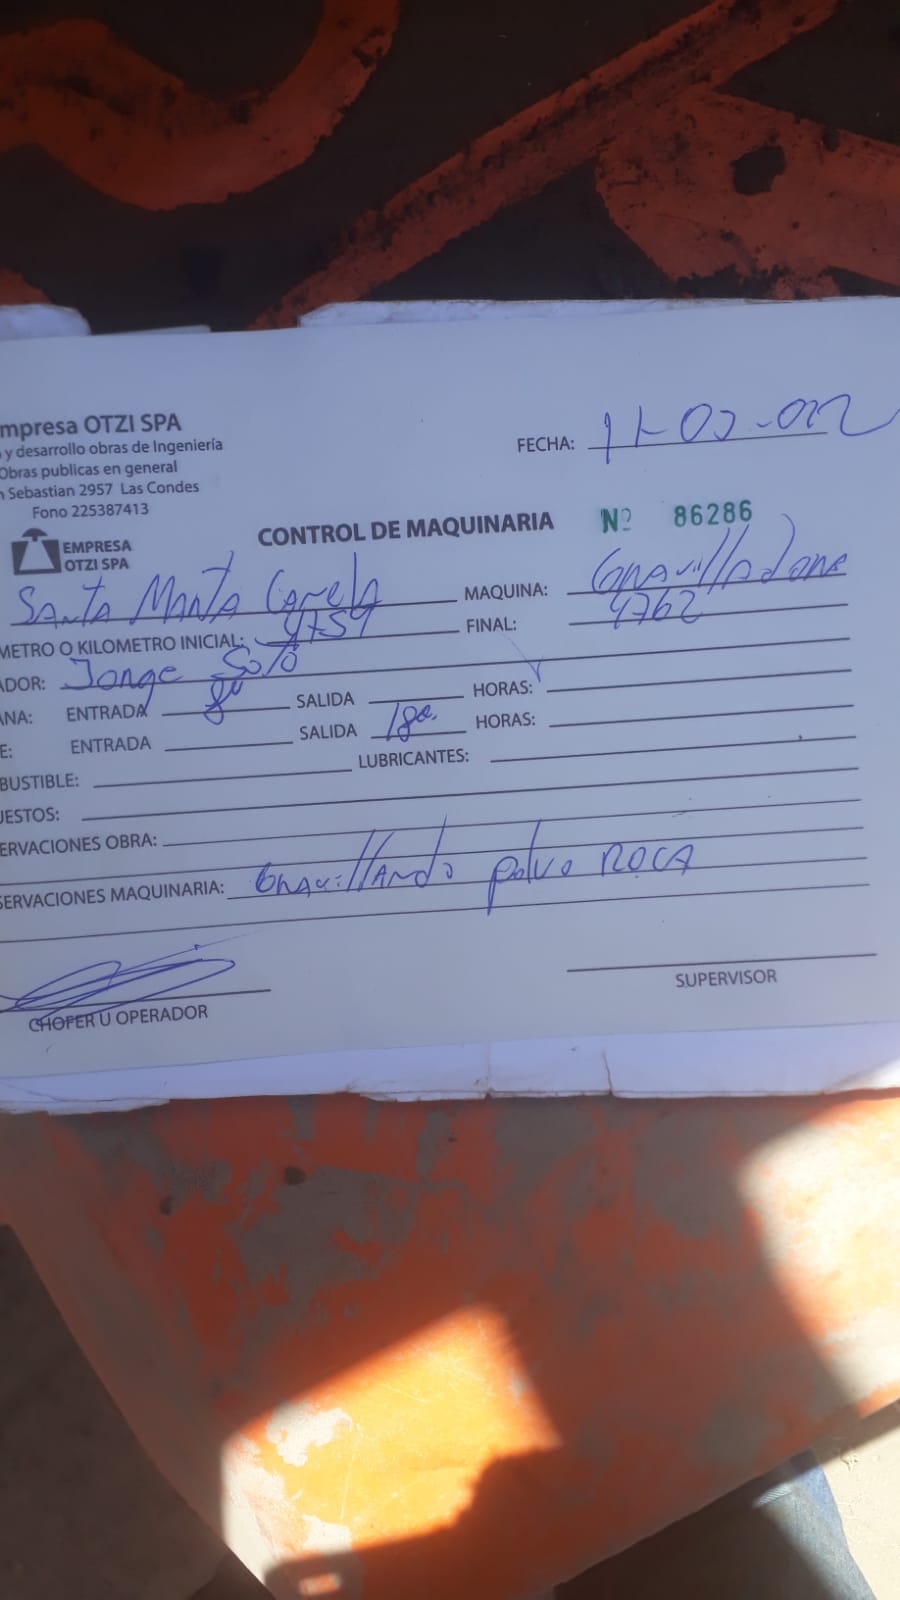 mpresa OTZI SPA
y desarrollo obras de Ingeniería
Obras publicas en general
n Sebastian 2957 Las Condes
Fono 225387413
FECHA: 11-03-022
CONTROL DE MAQUINARIA Nº 86286
EMPRESA
OTZI SPA
SANTA MARTA MAQUINA: GRAvillAdora
METRO O KILOMETRO INICIAL: 4759 FINAL: 4762
ADOR: Jorge Soto
ANA: ENTRADA 8 SALIDA HORAS:
E: ENTRADA SALIDA 18 HORAS:
BUSTIBLE: LUBRICANTES:
UESTOS:
ERVACIONES OBRA:
SERVACIONES MAQUINARIA: GRAvillANdo polvo ROCA
CHOFER U OPERADOR SUPERVISOR